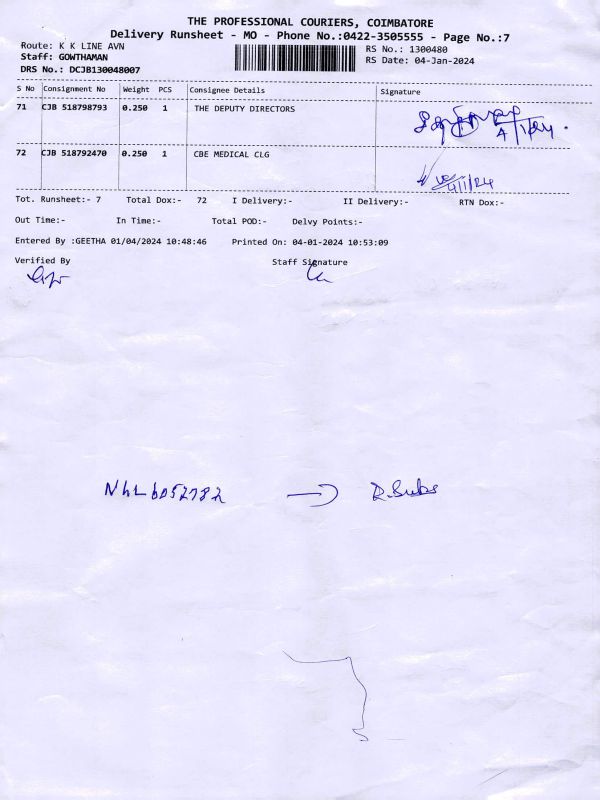 THE PROFESSIONAL COURIERS, COIMBATORE
Delivery Runsheet - MO - Phone No.:0422-3505555 - Page No.:7
Route: K K LINE AVN
RS No.: 1300480
Staff: GOWTHAMAN
RS Date: 04-Jan-2024
DRS No.: DCJB130048007
S No Consignment No Weight PCS Consignee Details Signature
71 CJB 518798793 0.250 1 THE DEPUTY DIRECTORS
4/1/24.
72 CJB 518792470 0.250 1 CBE MEDICAL CLG
4/1/24
Tot. Runsheet:- 7 Total Dox:- 72 I Delivery:- II Delivery:- RTN Dox:-
Out Time:- In Time:- Total POD:- Delvy Points:-
Entered By :GEETHA 01/04/2024 10:48:46 Printed On: 04-01-2024 10:53:09
Verified By Staff Signature